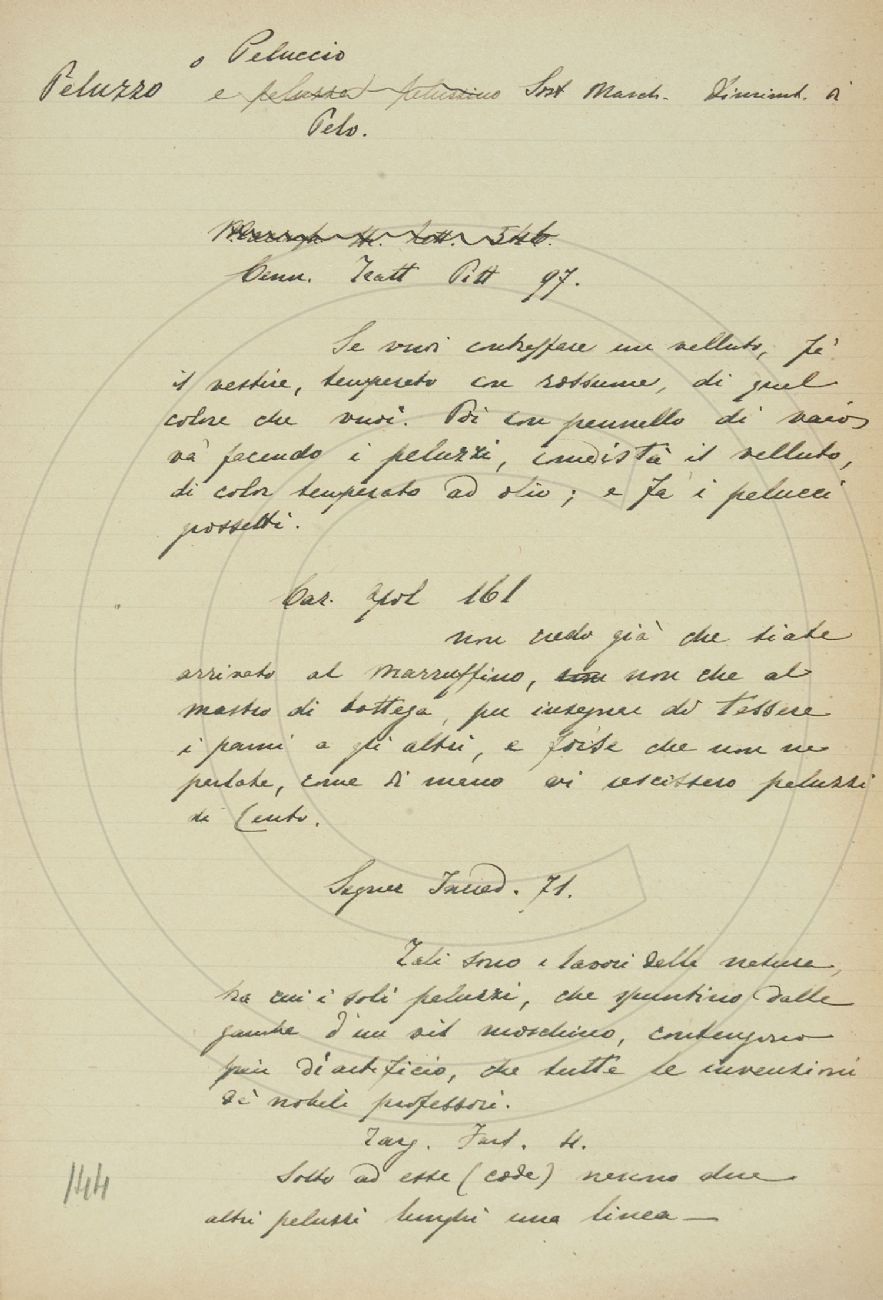 o Peluccio
Peluzzo e peluzza peluzzino Sost Masch. Diminut. di
Pelo.
Cenn. Tratt Pitt 97.
Se vuoi contraffare un velluto, fa'
il vestire, temperato con rossume, di quel
colore che vuoi. Poi con pennello di vaio
va' facendo i peluzzi, come istà il velluto,
di color temperato ad olio; e fa' i pelucci
grossetti.
Car. Apol 161
non credo già che siate
arrivato al Mazzuffino, non che al
mastro di bottega, per insegnar di tessere
i panni a gli altri, e forse che non ne
parlate, come se meno vi uscissero peluzzi
di Cento.
Segner Incred. 71.
Tali sono i lavori della natura,
tra cui i soli peluzzi, che spuntino dalle
gambe d'un vil moschino, contengono
più d'artificio, che tutte le invenzioni
de' nobili professori.
Targ. Fart. 4.
Sotto ad esse (code) nerino due
altri peluzzi lunghi una linea —
144